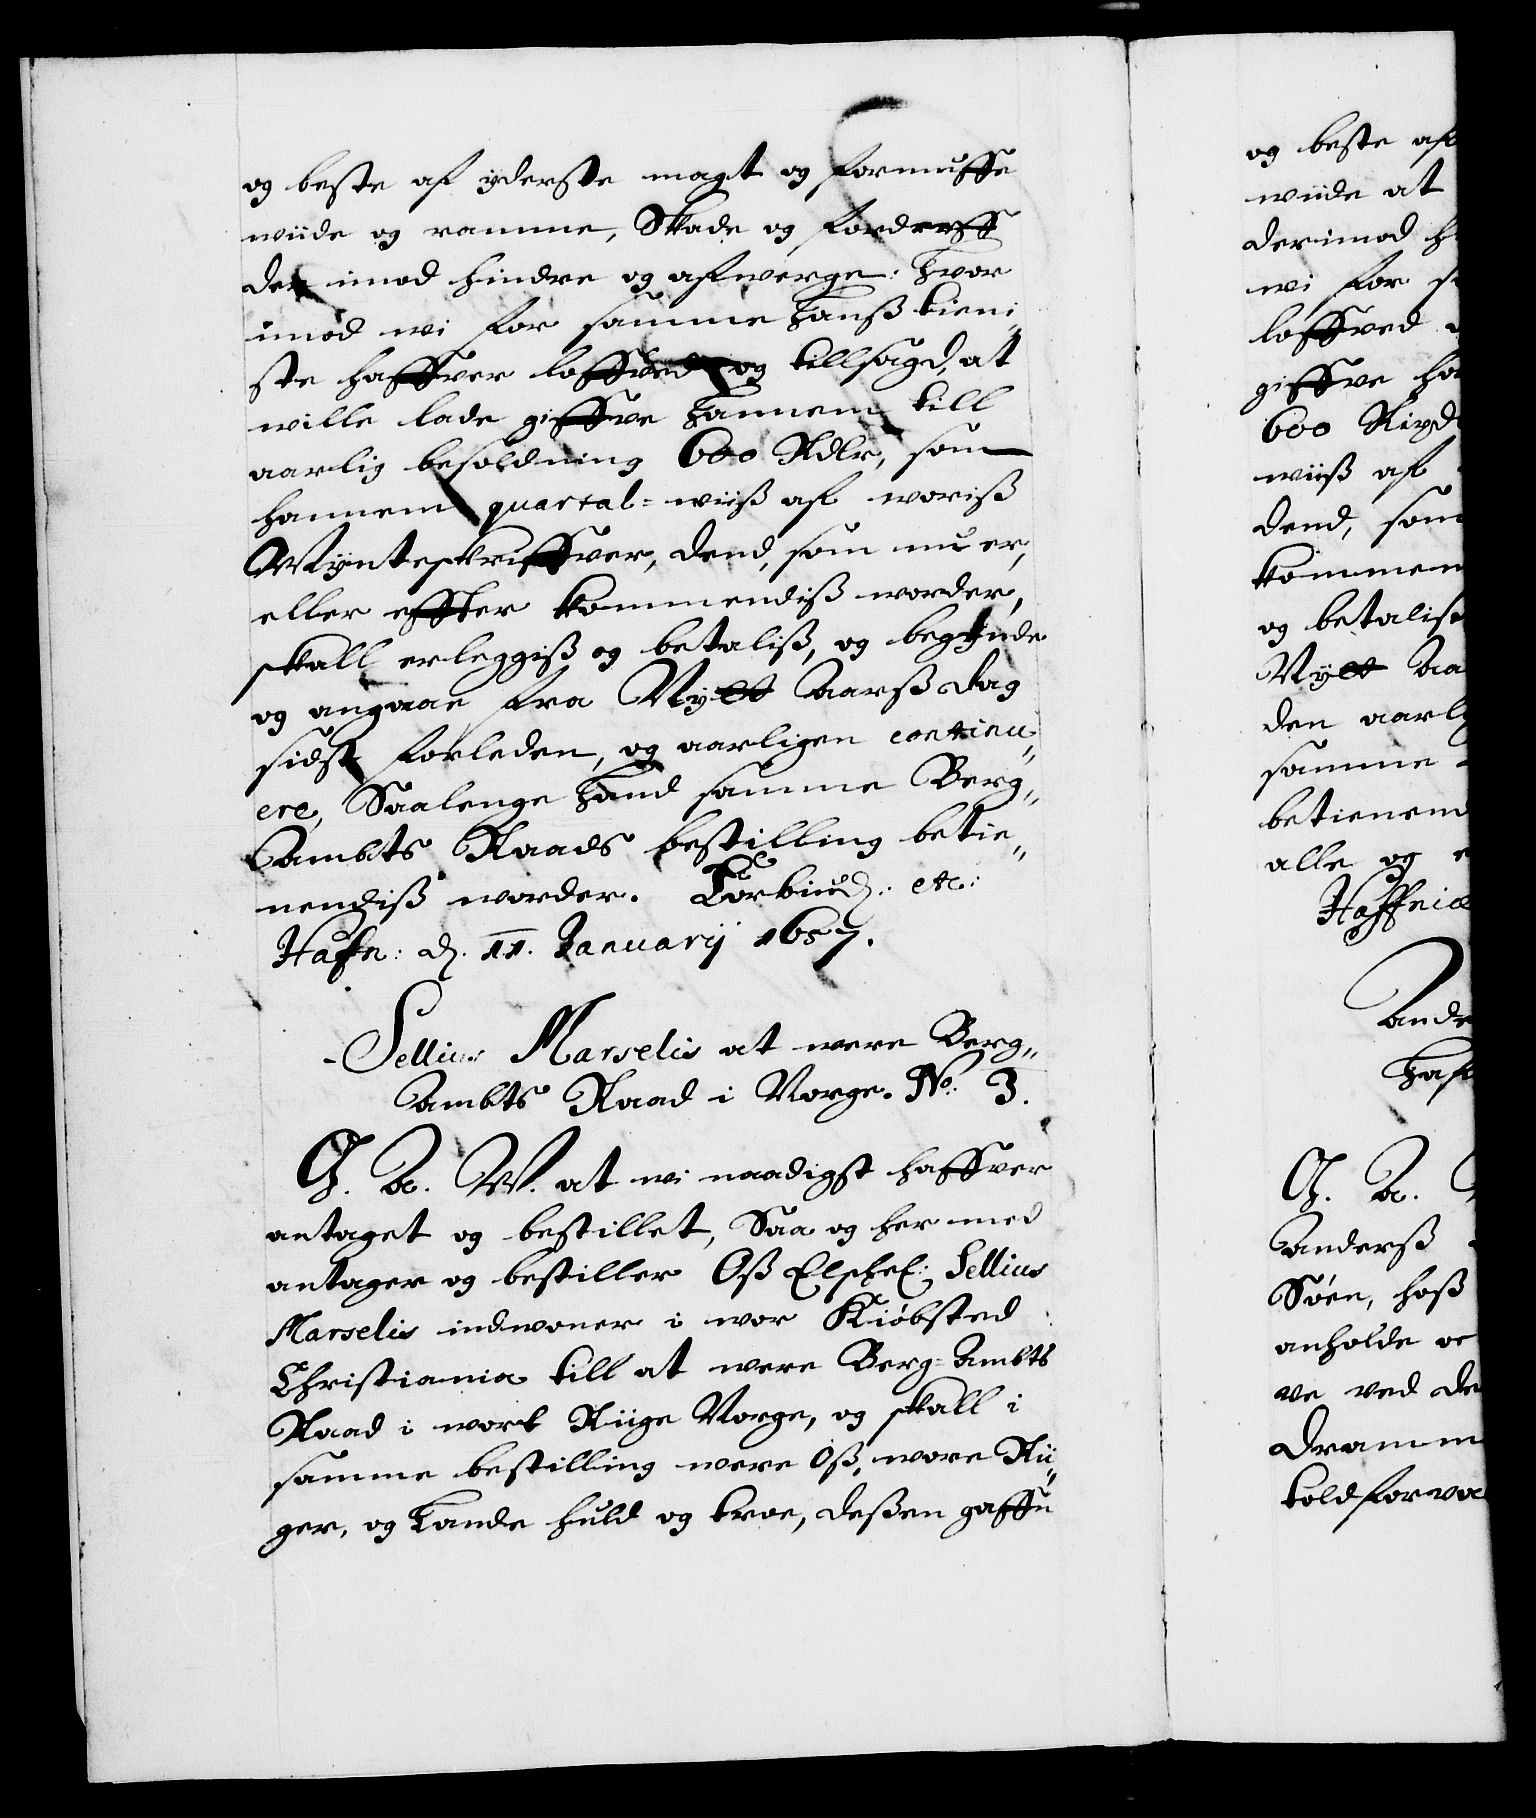 og beste af yderste magt og formuffe
wiide og ramme, Skade og forderff
der imod hindre og afwerge: Hvor
imod wi for samme Hanß tieni¸
ste haffver loffved og tillsagd, at
wille lade giffve Hannem till
aarlig besoldning 600 Rdlr, som
hannem quartal=wiiß af woriß
Mÿnteskriffver, dend, som nu er,
eller effter kommendiß worder,
skall erleggiß og betaliß, og begynde
og angaae fra Nÿtt Aarß dag
sidst forleden, og aarligen continu„
ere, Saalenge Hand samme Berg„
Ambts Raads bestilling betie„
nendiß worder. Forbiud: etc:
Hafn: d. 11. Januarij 1657.
Sellius Marselis at were Berg„
Ambts Raad i Norge. No: 3.
G. A. W. at wi naadigst haffver
antaget og bestillet, Saa og her med
antager og bestiller Oß Elschel: Sellius
Marselis indwoner i wor Kiöbsted
Christiania till at were Berg=Ambts
Raad i wort Riige Norge, og skall i
samme bestilling were Oß, wore Rii„
ger, og Lande huld og troe, deßen gaffn
og beste af
wiide at
derimod h
wi for s
loffved
giffve ha
600 Rixd
wiiß af
dend, som
kommen
og betalis
Nÿtt Aa
den aarl
samme
betienend
alle og e
Haffniæ
Ande
Haf
G. A.
Anderß
Söen, hoß
anholde oc
ve ved de
Dramm
toldforva